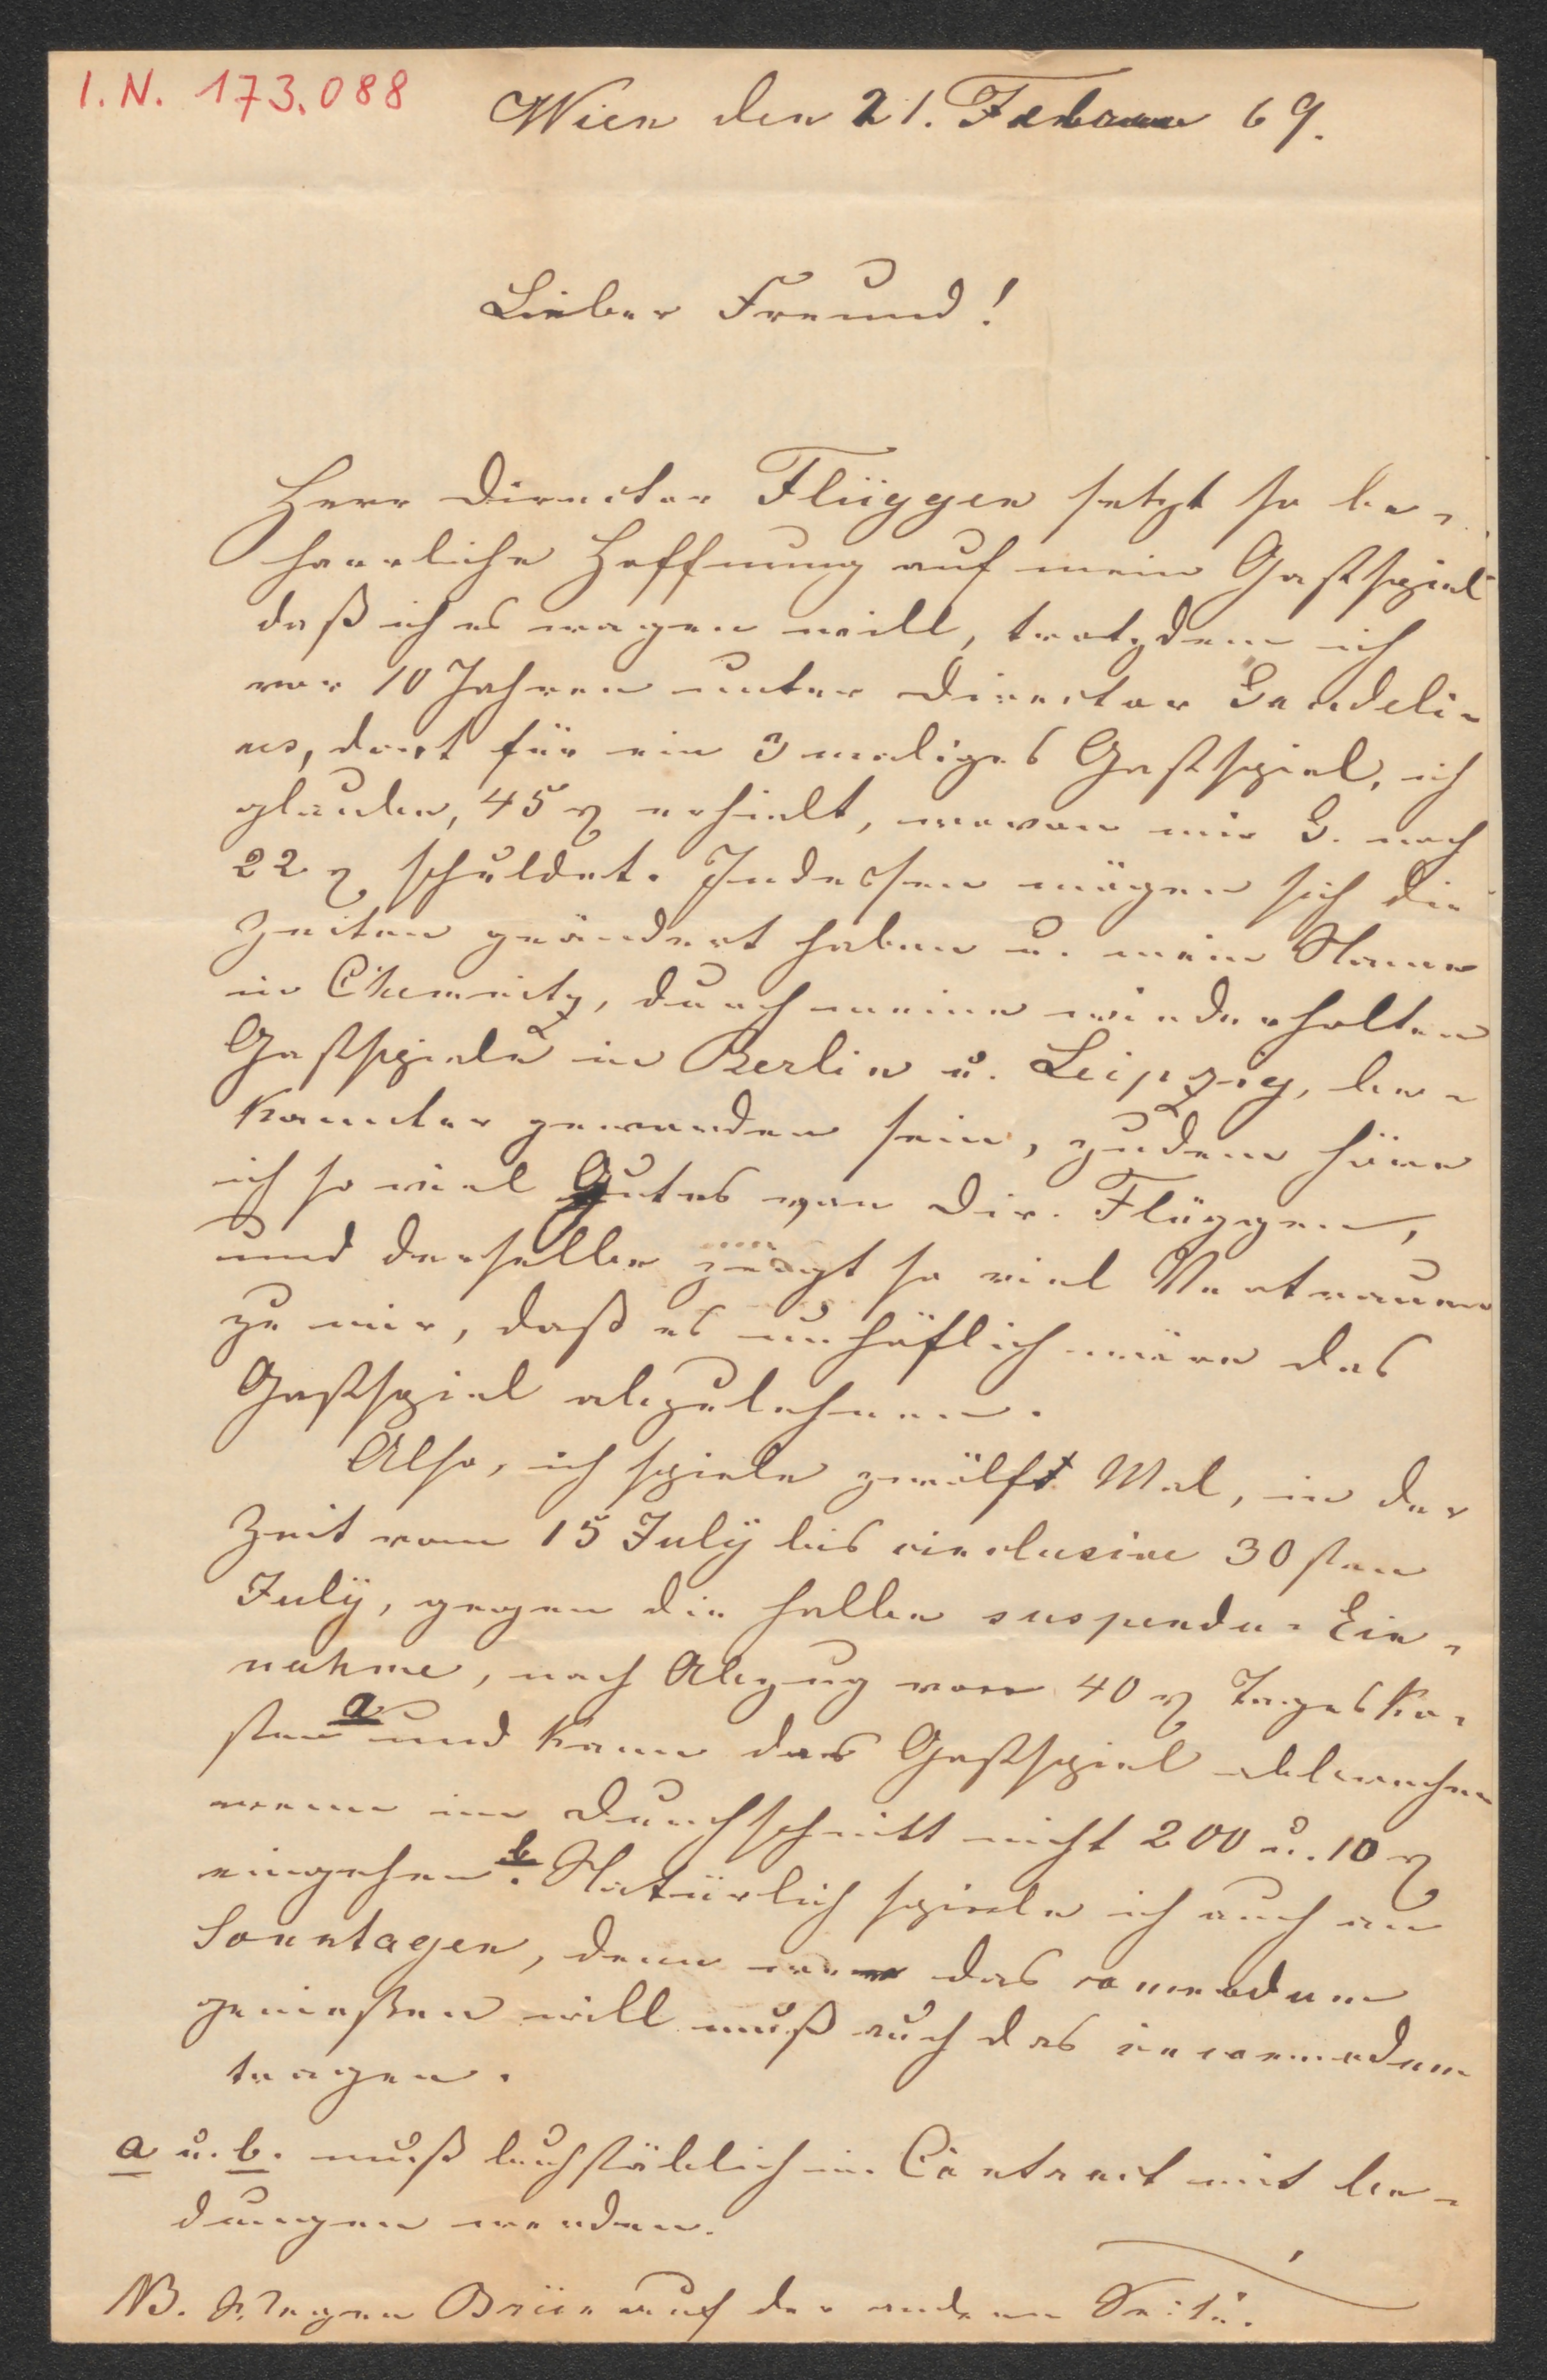 I. N. 173.088
Wien den 21. Februar 69.
Lieber Freund!
Herr Director Flüggen setzt so be-
harrliche Hoffnung auf mein Gastspiel
daß ich es wagen will, trotzdem ich
vor 10 Jahren unter Director
dort für ein 3 maliges Gastspiel, ich
glaube, 45 erhielt, wovon mir G. noch
22 schuldet. Indessen mögen sich die
Zeiten geändert haben u. mein Name
in Chemnitz, durch meine wiederholten
Gastspiele in Berlin u. Leipzig, be-
kannter geworden sein, zudem höre
ich so viel Gutes von Dir. Flüggen,
und derselbe zeigt so viel Vertrauen
zu mir, daß es unhöflich wäre das
Gastspiel abzulehnen.
Also, ich spiele zwölf Mal, in der
Zeit vom 15 July bis inclusive 30sten
July, gegen die halbe suspendu-Ein-
nahme, nach Abzug von 40 Tagesko-
sten a und kann das Gastspiel abbrechen
wenn im Durchschnitt nicht 200 u. 10
eingehen b. Natürlich spiele ich auch an
Sonntagen, denn wer das comodum
genießen will muß auch das incommodum
tragen.
a u. b. muß buchstäblich im Contract mit be-
dungen werden.
NB. Wegen Brünn auf der andern Seite.